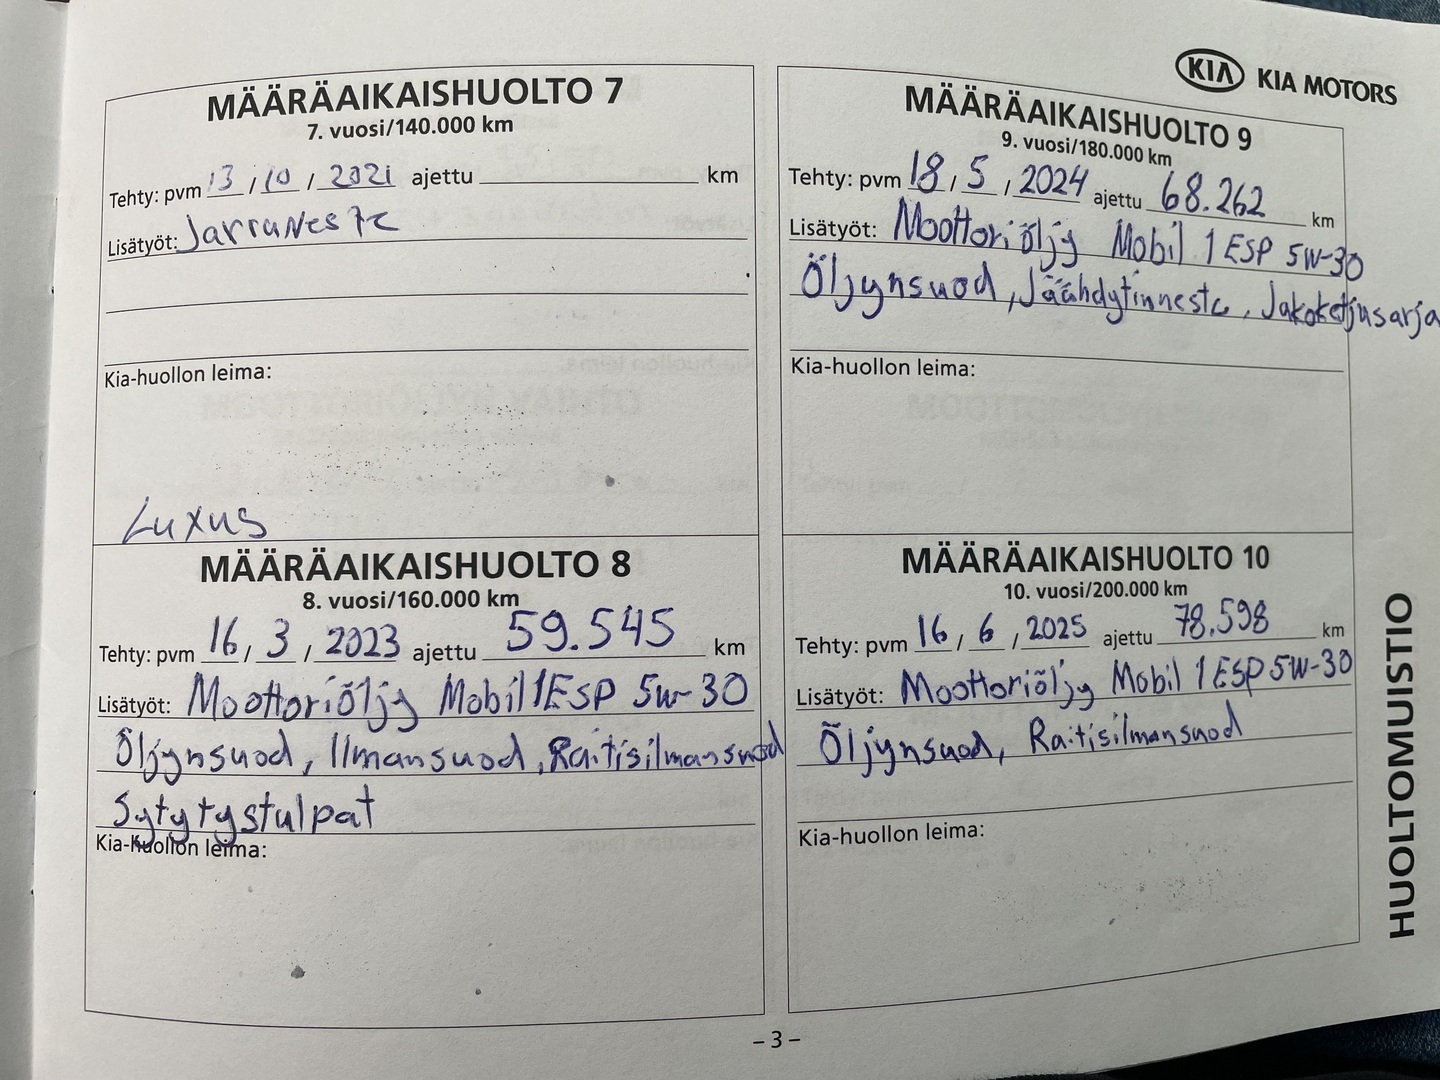 KIA KIA MOTORS
MÄÄRÄAIKAISHUOLTO 7
7. vuosi/140.000 km
Tehty: pvm 13 / 10 / 2021 ajettu km
Lisätyöt: Jarraneste
Kia-huollon leima:
Luxus
MÄÄRÄAIKAISHUOLTO 8
8. vuosi/160.000 km
Tehty: pvm 16 / 3 / 2023 ajettu 59.545 km
Lisätyöt: Moottoriöljy Mobil 1 ESP 5w-30
Öljynsuod, Ilmansuod, Raitisilmansuod
Sytytystulpat
Kia-huollon leima:
MÄÄRÄAIKAISHUOLTO 9
9. vuosi/180.000 km
Tehty: pvm 18 / 5 / 2024 ajettu 68.262 km
Lisätyöt: Moottoriöljy Mobil 1 ESP 5w-30
Öljynsuod, Jäähdytinneste, Jakoketjusarja
Kia-huollon leima:
MÄÄRÄAIKAISHUOLTO 10
10. vuosi/200.000 km
Tehty: pvm 16 / 6 / 2025 ajettu 78.598 km
Lisätyöt: Moottoriöljy Mobil 1 ESP 5w-30
Öljynsuod, Raitisilmansuod
Kia-huollon leima:
HUOLTOMUISTIO
– 3 –